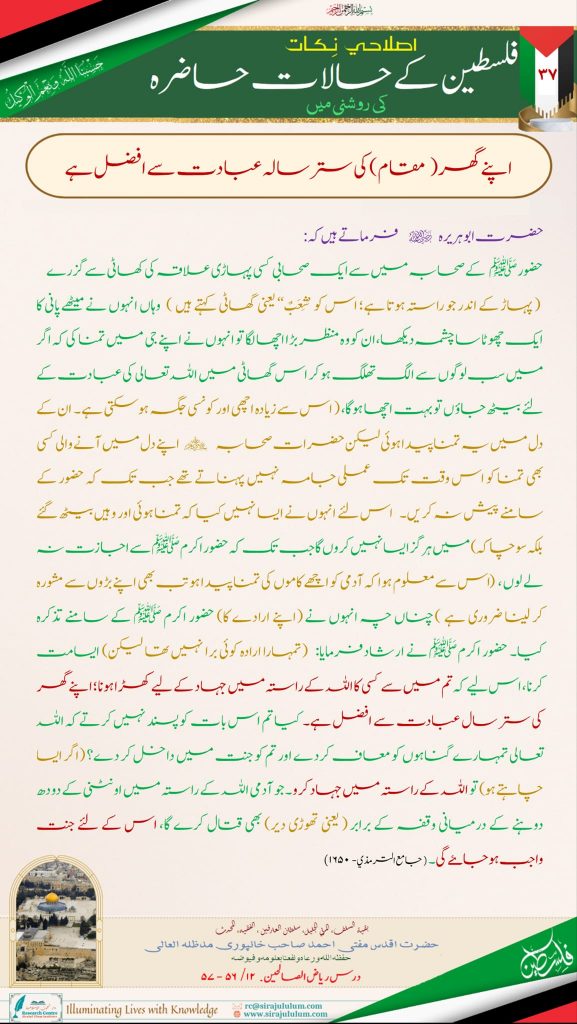 بسم اللہ الرحمن الرحیم
حَسْبُنَا اللّٰهُ وَنِعْمَ الْوَكِيْل
اصلاحی نِکات
فلسطین کے حالات حاضرہ
کی روشنی میں
۳۷
اپنے گھر ( مقام) کی ستر سالہ عبادت سے افضل ہے
حضرت ابوہریرہ رضی اللہ عنہ فرماتے ہیں کہ:
حضور ﷺ کے صحابہ میں سے ایک صحابی کسی پہاڑی علاقہ کی گھاٹی سے گزرے
( پہاڑ کے اندر جو راستہ ہوتا ہے؛ اس کو شِعبٌ“ یعنی گھاٹی کہتے ہیں ) وہاں انہوں نے میٹھے پانی کا
ایک چھوٹا سا چشمہ دیکھا، ان کو وہ منظر بڑا اچھا لگا تو انہوں نے اپنے جی میں تمنا کی کہ اگر
میں سب لوگوں سے الگ تھلگ ہو کر اس گھاٹی میں اللہ تعالی کی عبادت کے
لئے بیٹھ جاؤں تو بہت اچھا ہوگا، ( اس سے زیادہ اچھی اور کونسی جگہ ہو سکتی ہے۔ ان کے
دل میں یہ تمنا پیدا ہوئی لیکن حضرات صحابہ اپنے دل میں آنے والی کسی
بھی تمنا کو اس وقت تک عملی جامہ نہیں پہناتے تھے جب تک کہ حضور کے
سامنے پیش نہ کریں۔ اس لئے انہوں نے ایسا نہیں کیا کہ تمنا ہوئی اور وہیں بیٹھ گئے
بلکہ سوچا کہ) میں ہرگز ایسا نہیں کروں گا جب تک کہ حضور اکرم ﷺ سے اجازت نہ
لے لوں، (اس سے معلوم ہوا کہ آدمی کو اچھے کاموں کی تمنا پیدا ہو تب بھی اپنے بڑوں سے مشورہ
کر لینا ضروری ہے ) چناں چہ انہوں نے (اپنے ارادے کا) حضور اکرم ﷺ کے سامنے تذکرہ
کیا۔ حضور اکرم ﷺ نے ارشاد فرمایا: (تمہارا ارادہ کوئی برا نہیں تھا لیکن) ایسا مت
کرنا، اس لیے کہ تم میں سے کسی کا اللہ کے راستہ میں جہاد کے لیے کھڑا ہونا؛ اپنے گھر
کی ستر سال عبادت سے افضل ہے۔ کیا تم اس بات کو پسند نہیں کرتے کہ اللہ
تعالی تمہارے گناہوں کو معاف کر دے اور تم کو جنت میں داخل کر دے؟ (اگر ایسا
چاہتے ہو) تو اللہ کے راستہ میں جہاد کرو۔ جو آدمی اللہ کے راستہ میں اونٹنی کے دودھ
دوہنے کے درمیانی وقفہ کے برابر ( یعنی تھوڑی دیر) بھی قتال کرے گا، اس کے لئے جنت
واجب ہو جائے گی۔ (جامع الترمذی- ۱۶۵۰)
حضرت اقدس مفتی احمد صاحب خانپوری مدظلہ العالی
حفظہ اللہ ورعاہ ونفعنا بعلومہ وفیوضہ
درس ریاض الصالحین. ۱۲/ ۵۶ - ۵۷
فلسطین
Research Centre
Illuminating Lives with Knowledge
rc@sirajululum.com
www.sirajululum.com